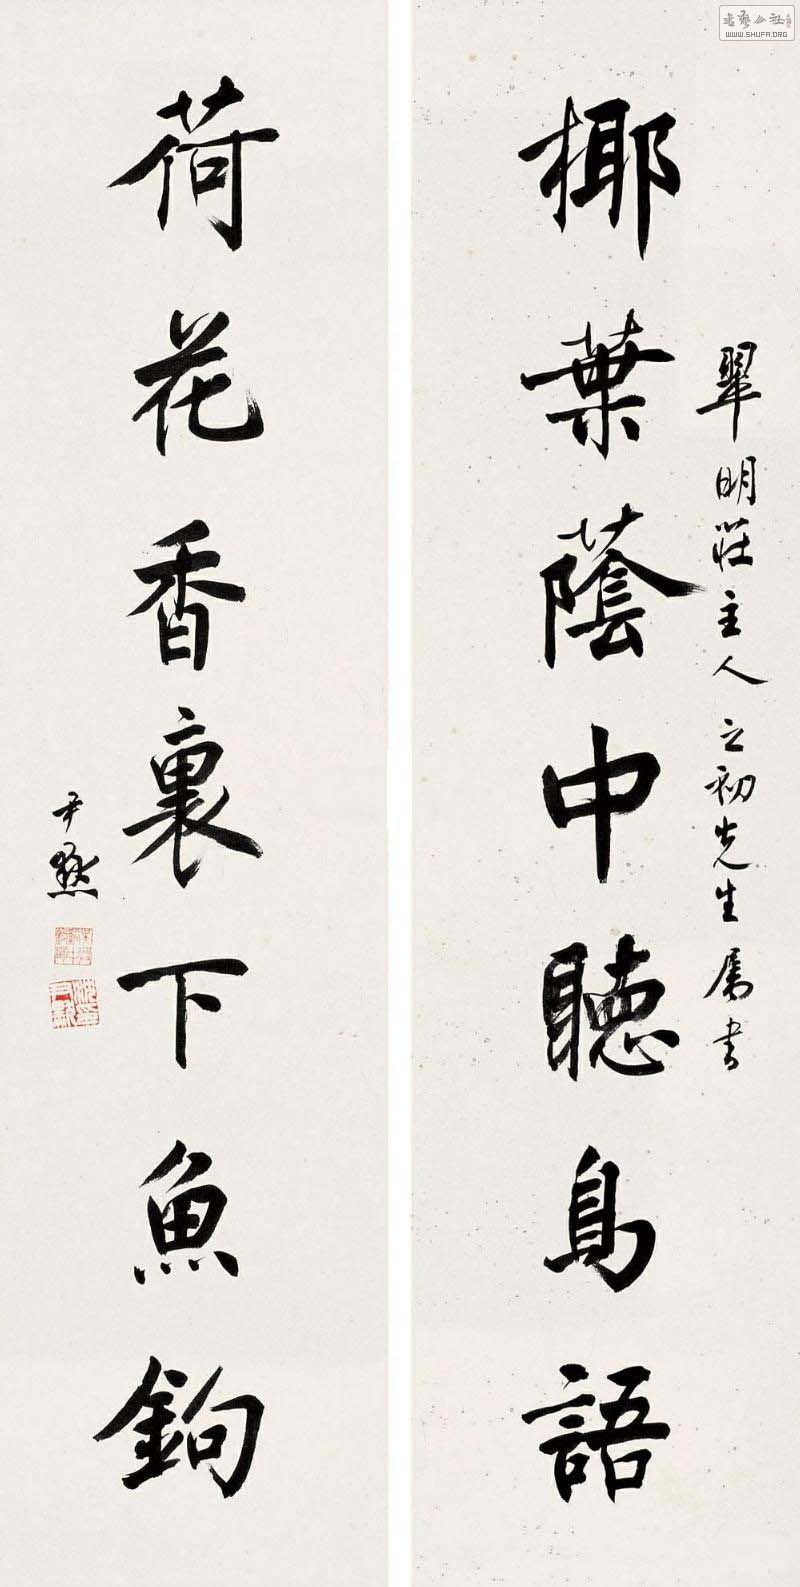 椰葉蔭中聽鳥語
翠明莊主人立初先生屬書
荷花香裏下魚鉤
尹默
書藝公社
WWW.SHUFA.ORG